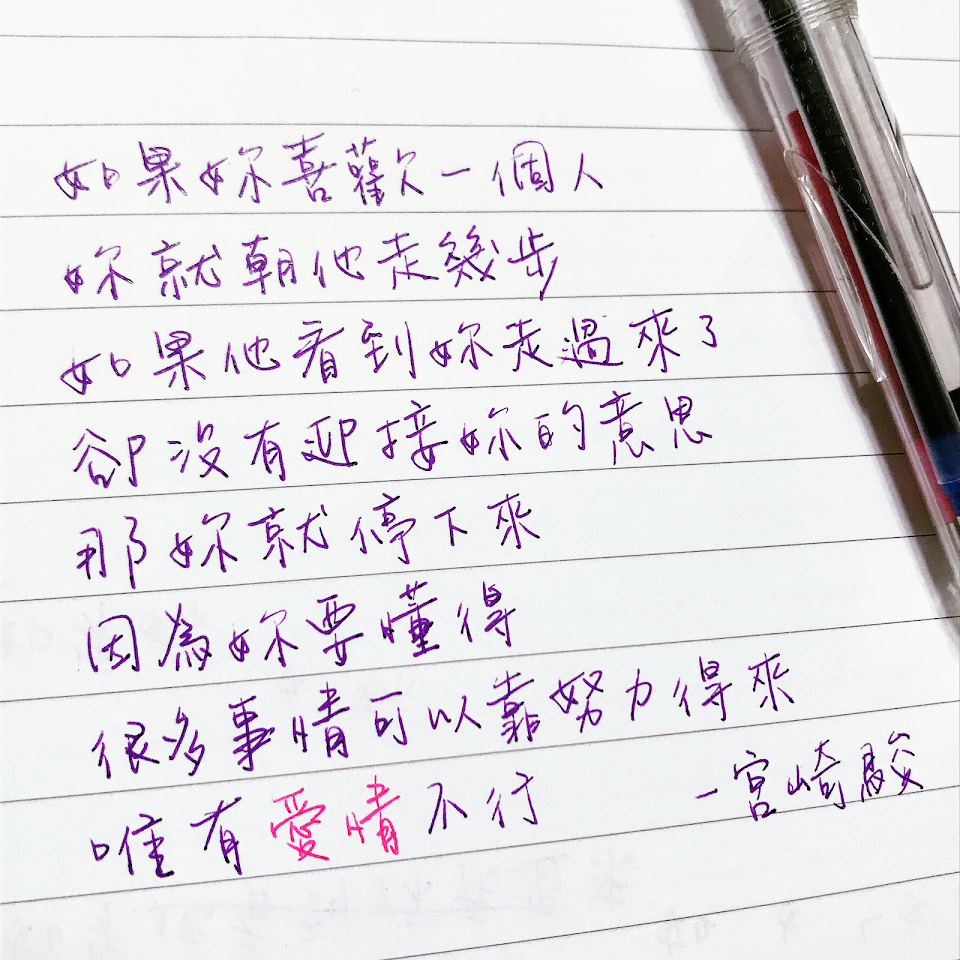 如果妳喜歡一個人
妳就朝他走幾步
如果他看到妳走過來了
卻沒有迎接妳的意思
那妳就停下來
因為妳要懂得
很多事情可以靠努力得來
唯有愛情不行
－宮崎駿